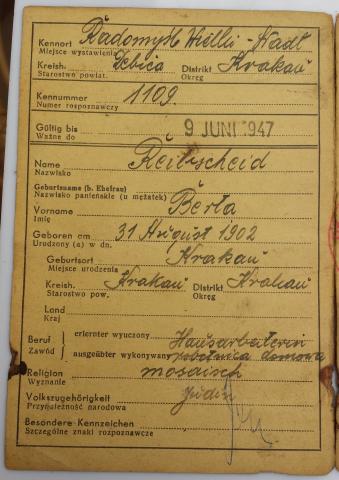 Kennort Radomyśl Wielki - Stadt
Miejsce wystawienia
Kreish. Debica Distrikt Krakau
Starostwo powiat. Okręg
Kennummer 1109.
Numer rozpoznawczy
Gültig bis 9 JUNI 1947
Ważne do
Name Reibscheid
Nazwisko
Geburtsname (b. Ehefrau)
Nazwisko panieńskie (u mężatek)
Vorname Berta
Imię
Geboren am 31 August 1902
Urodzony (a) w dn.
Geburtsort Krakau
Miejsce urodzenia
Kreish. Krakau Distrikt Krakau
Starostwo pow. Okręg
Land
Kraj
Beruf erlernter wyuczony Hausarbeiterin
Zawód ausgeübter wykonywany robotnica domowa
Religion mosaisch
Wyznanie
Volkszugehörigkeit Jüdin
Przynależność narodowa
Besondere Kennzeichen
Szczególne znaki rozpoznawcze